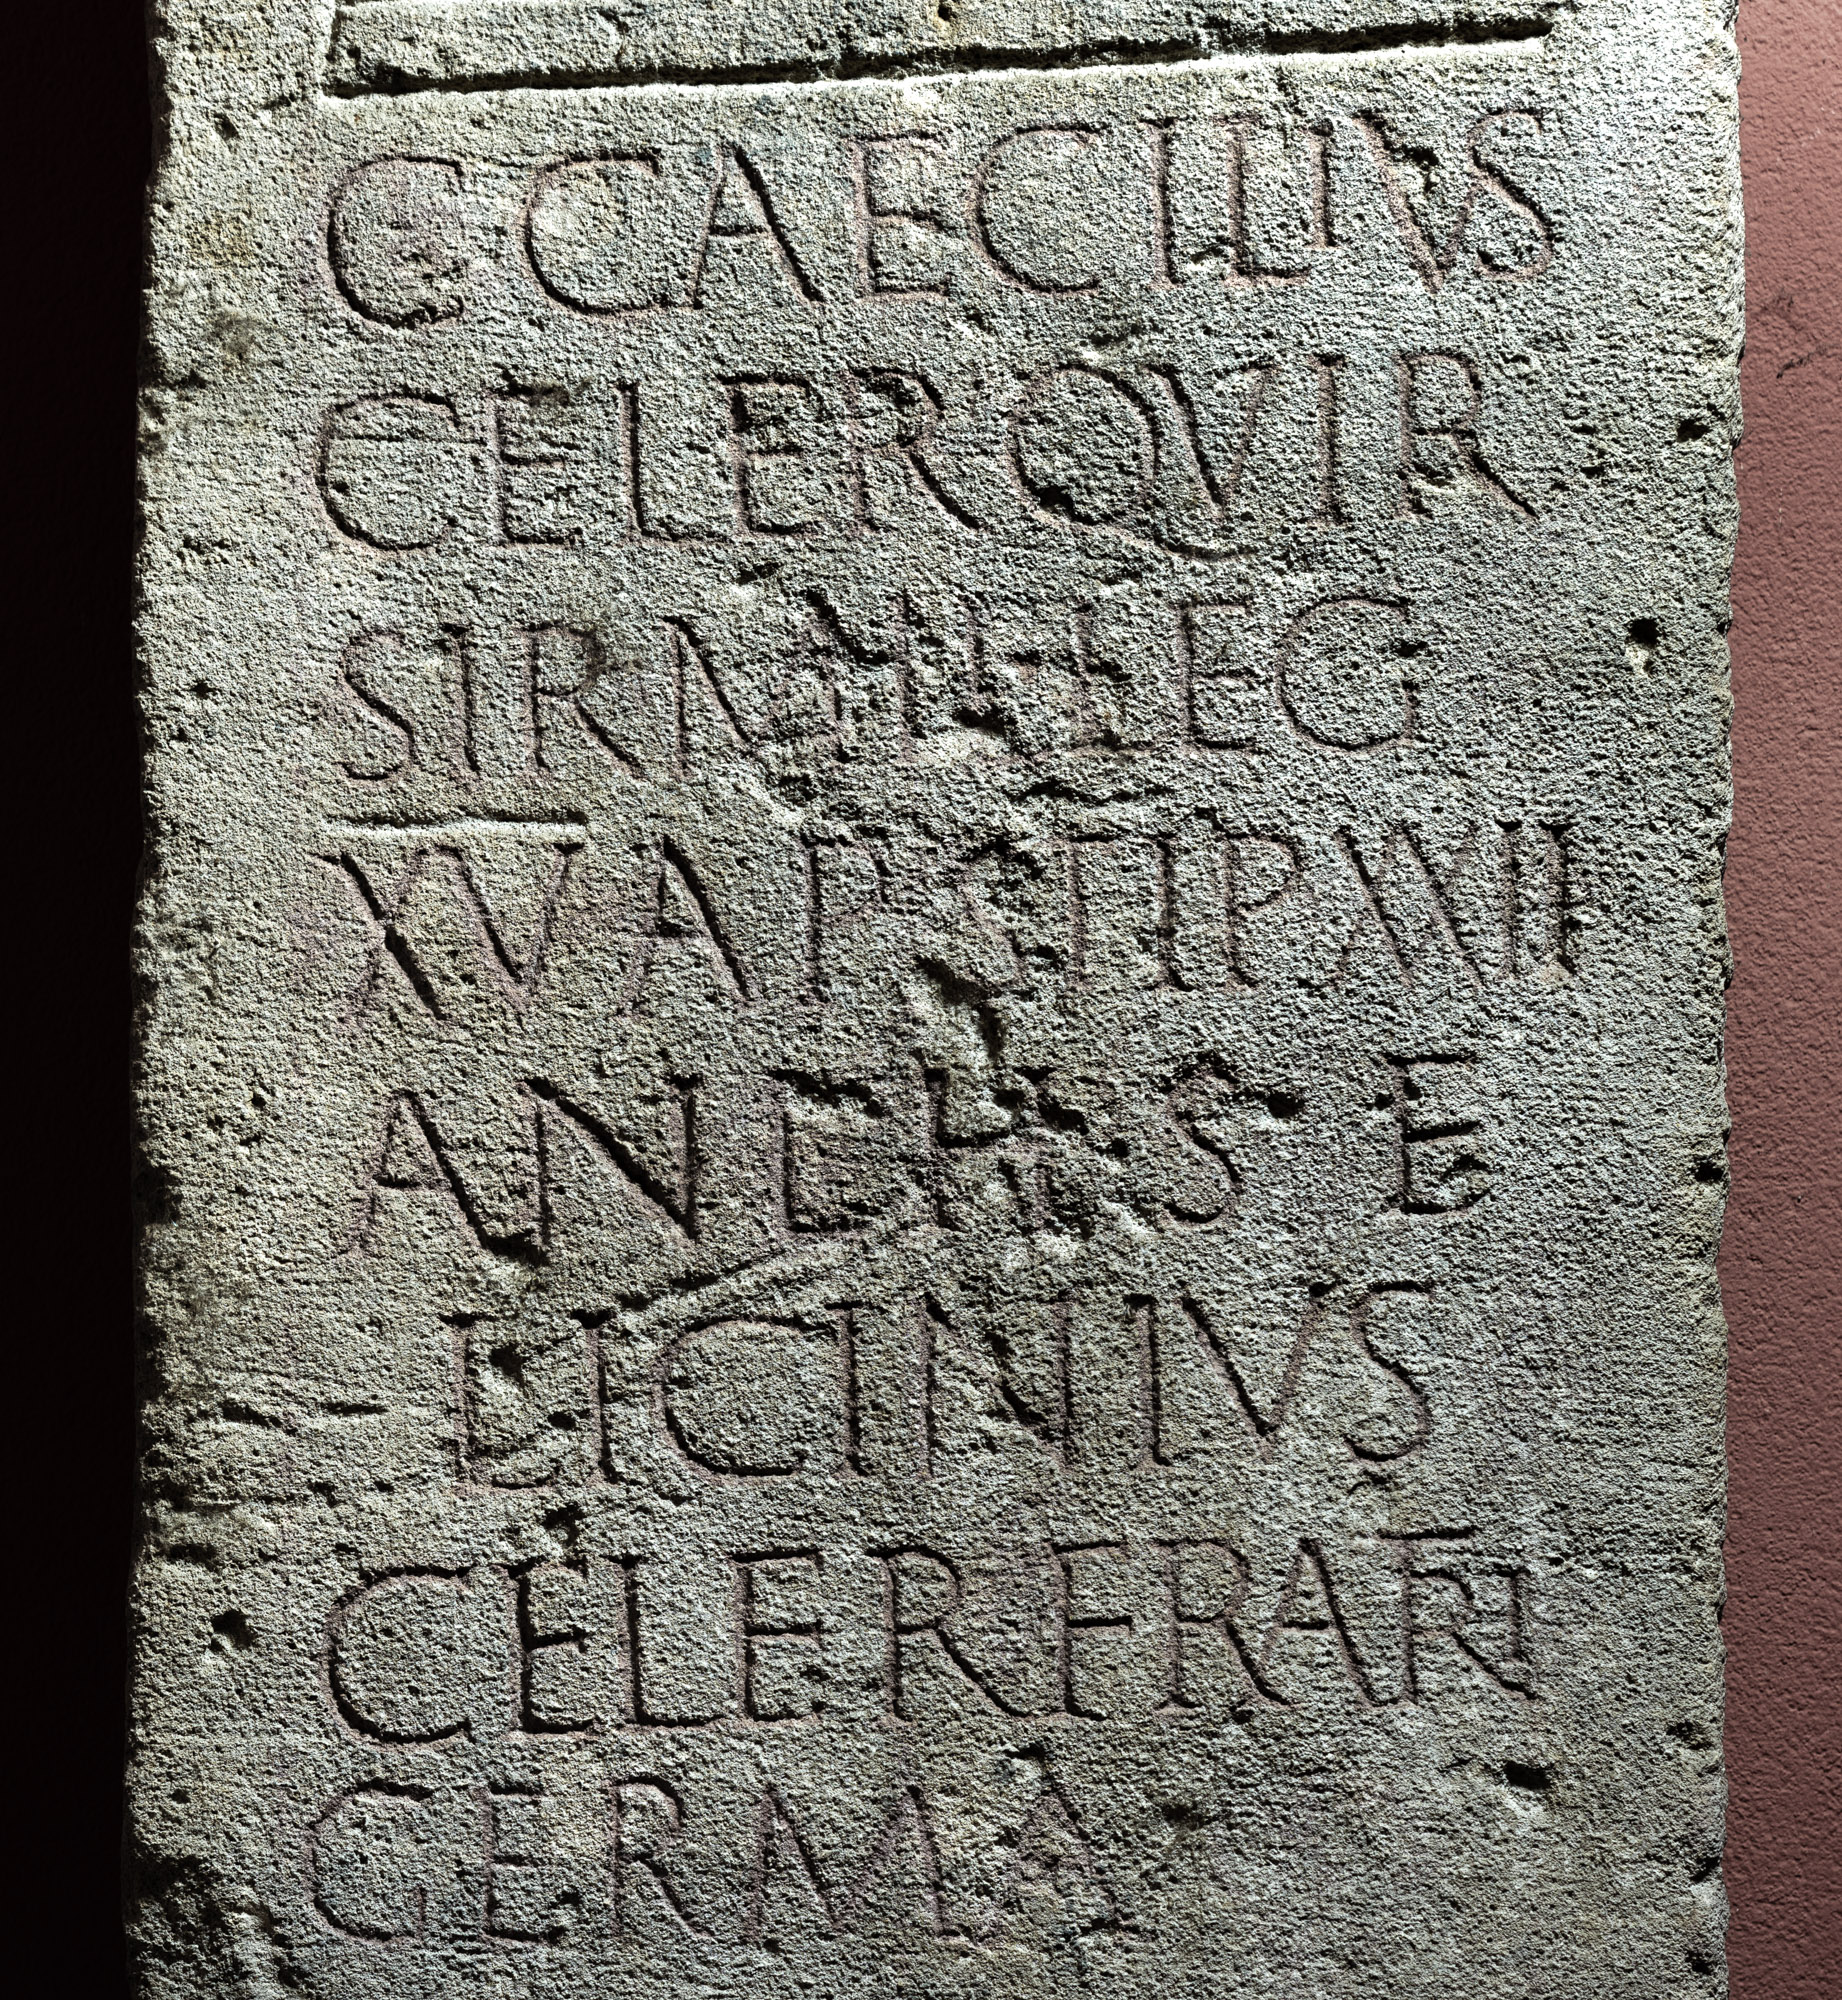 C CAECILIVS
CELER QVIR
SIR MIL LEG
XV AP STIP XVII
AN L H S E
LICINIVS
CELER FRATRI
GERMA